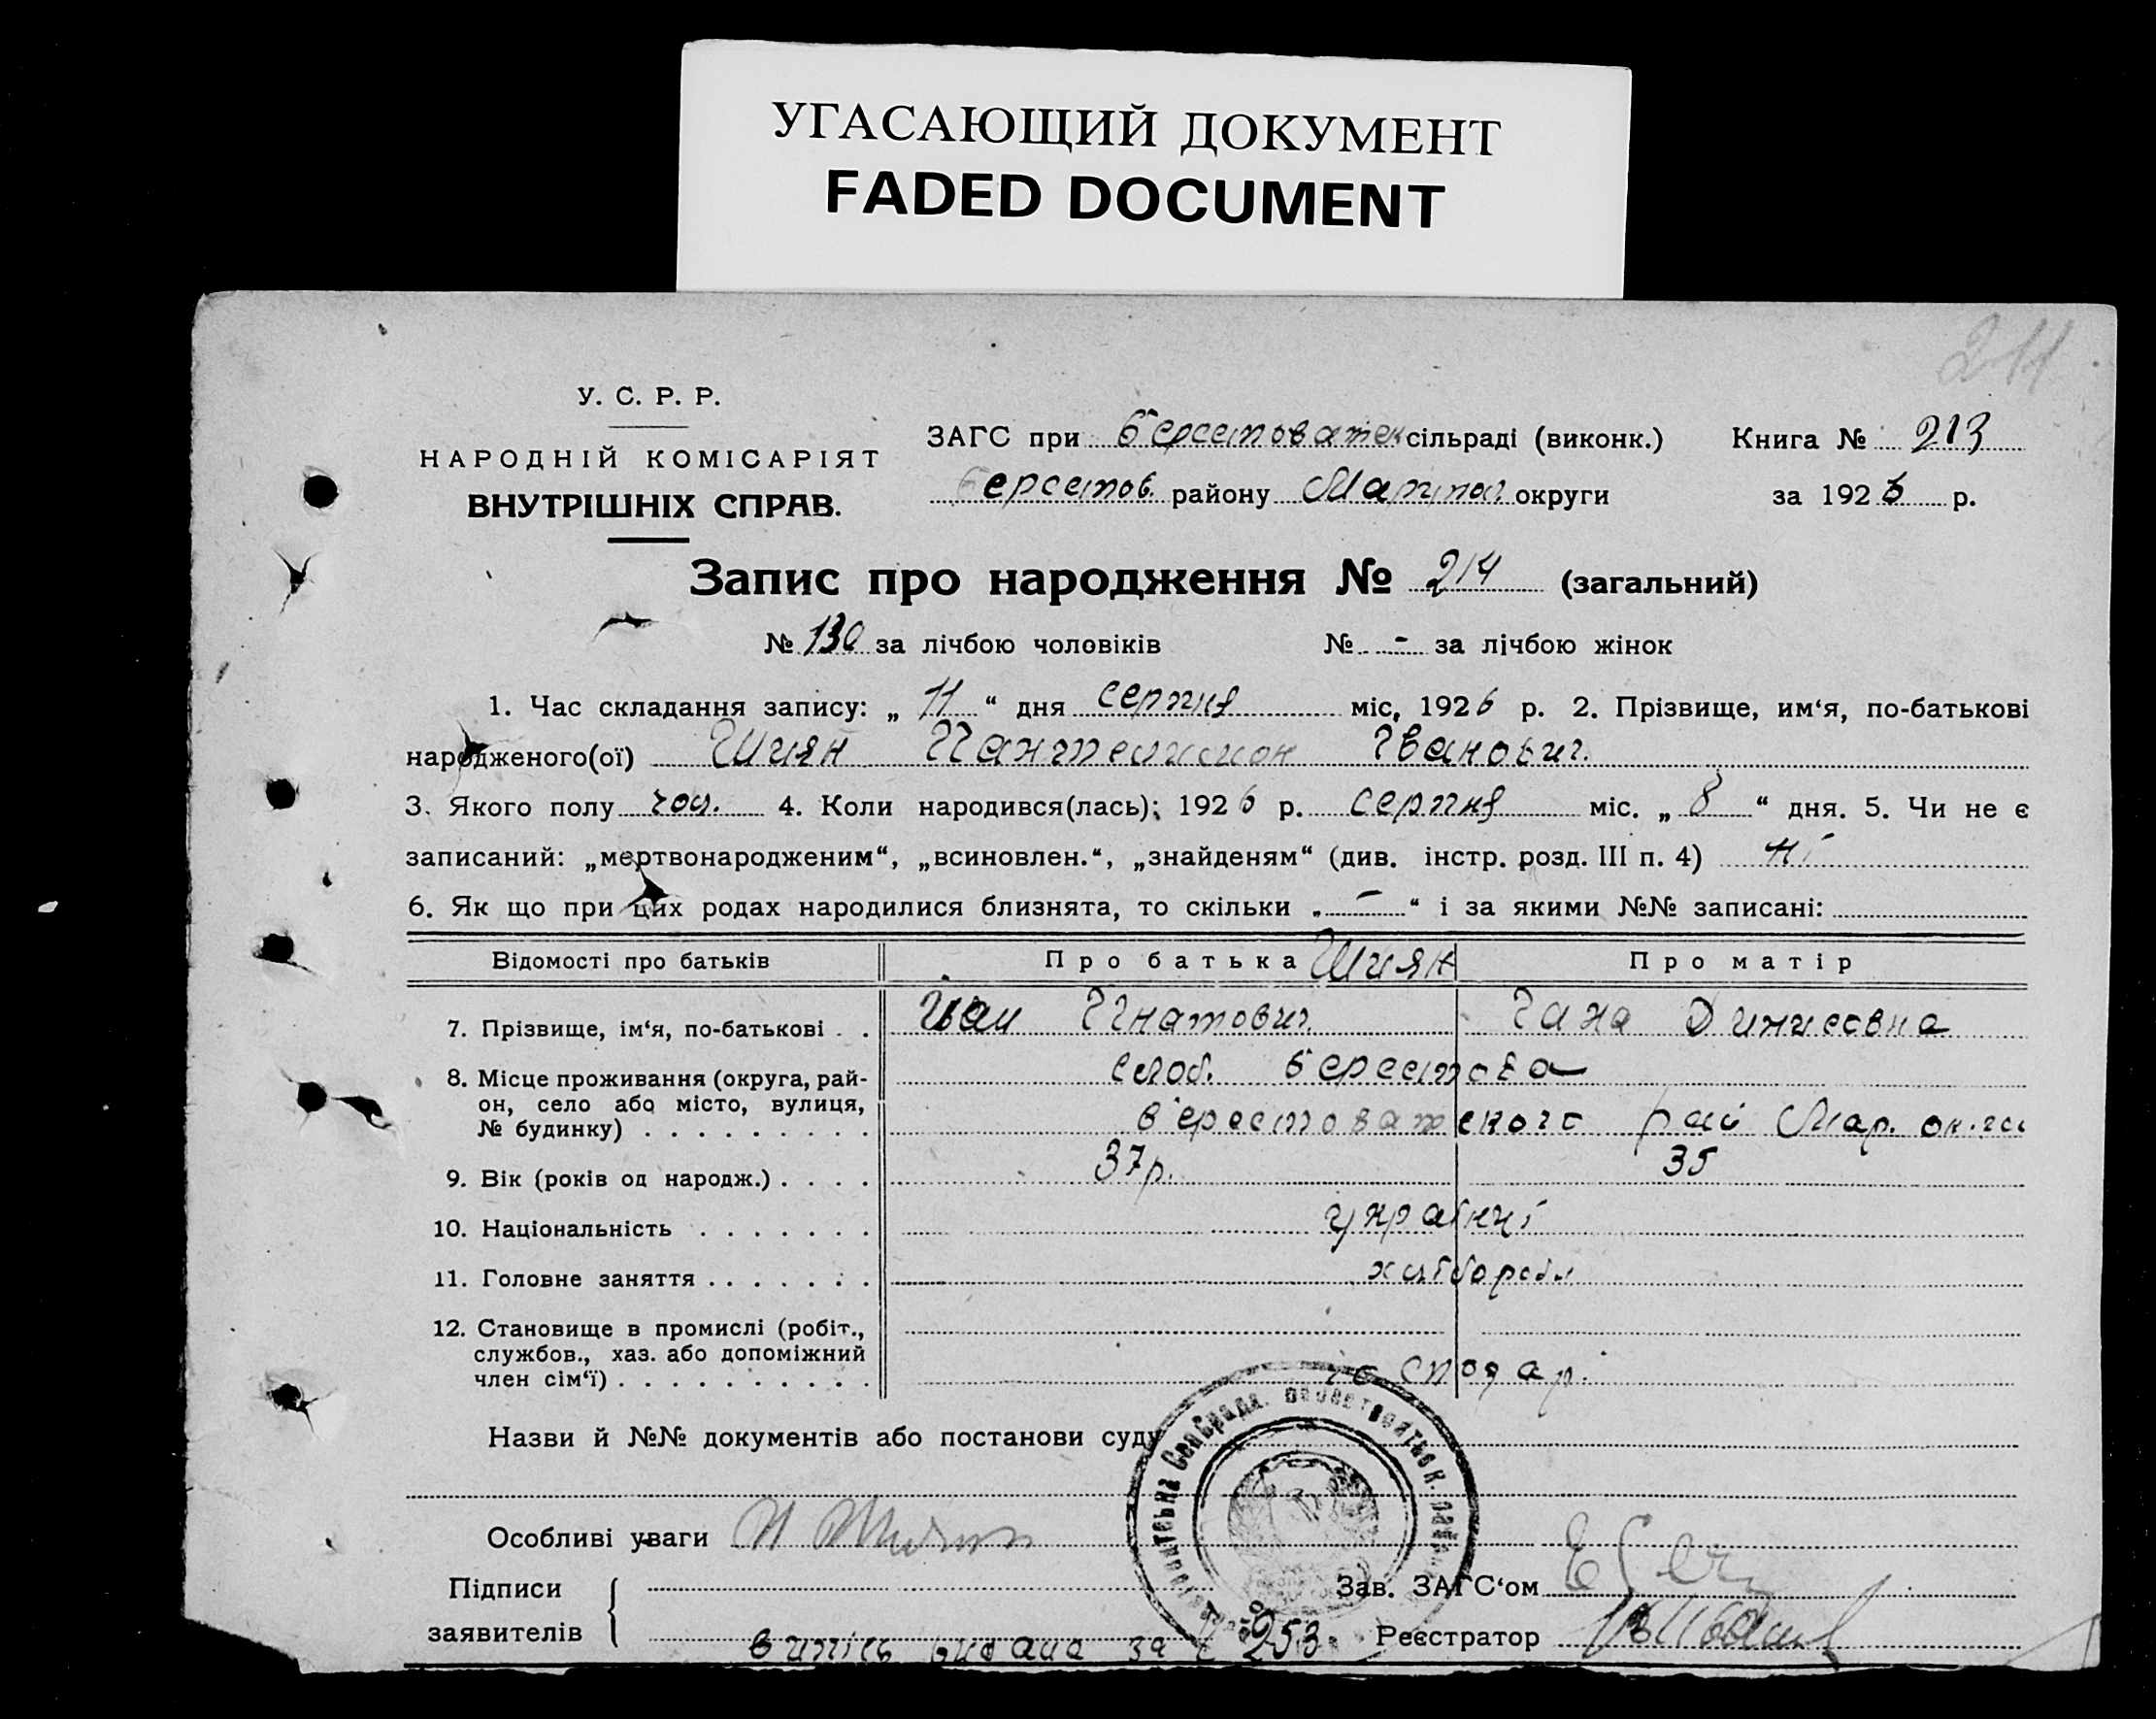 УГАСАЮЩИЙ ДОКУМЕНТ
FADED DOCUMENT
214
У. С. Р. Р.
НАРОДНІЙ КОМІСАРІЯТ
ВНУТРІШНІХ СПРАВ.
ЗАГС при Берестоватск сільраді (виконк.) Книга № 213
Берестов. району Маріпол. округи за 1926 р.
Запис про народження № 214 (загальний)
№ 130 за лічбою чоловіків № - за лічбою жінок
1. Час складання запису: „ 11 “ дня серпня міс, 1926 р. 2. Прізвище, им‘я, по-батькові
народженого(ої) Шиян Пантелимон Іванович.
3. Якого полу чол. 4. Коли народився(лась); 1926 р. серпня міс. „ 8 “ дня. 5. Чи не є
записаний: „мертвонародженим“, „всиновлен.“, „знайденям“ (див. інстр. розд. III п. 4) ні
6. Як що при цих родах народилися близнята, то скільки „ - “ і за якими №№ записані:
Відомості про батьків Про батька Шиян Про матір
7. Прізвище, ім‘я, по-батькові . . Іван Гнатович Гана Динисовна
8. Місце проживання (округа, рай- слоб. Берестова
он, село або місто, вулиця, Берестоватского рай Мар. ок.
№ будинку) . . . . . . . . .
9. Вік (років од народж.) . . . . 37р. 35
10. Національність . . . . . . . україні
11. Головне заняття . . . . . . . хліборобы
12. Становище в промислі (робіт.,
службов., хаз. або допоміжний
член сім‘ї) . . . . . . . . . . господар.
Назви й №№ документів або постанови суду
Особливі уваги
Підписи Зав. ЗАГС‘ом
заявителів Реєстратор
випись видана за № 253